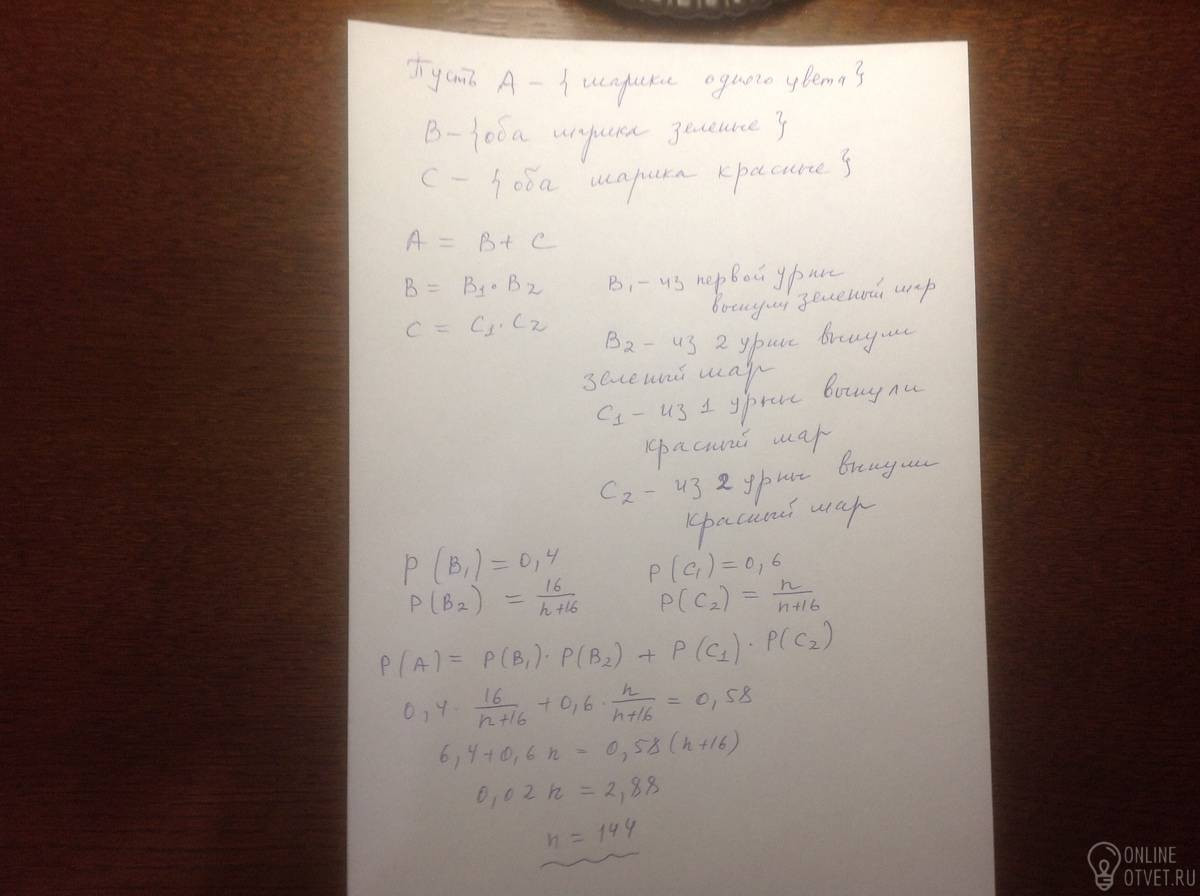 Пусть A – { шарики одного цвета}
B – {оба шарика зеленые}
C – {оба шарика красные}
A = B + C
B = B₁ · B₂
C = C₁ · C₂
B₁ – из первой урны
вынули зеленый шар
B₂ – из 2 урны вынули
зеленый шар
C₁ – из 1 урны вынули
красный шар
C₂ – из 2 урны вынули
красный шар
P(B₁) = 0,4 P(C₁) = 0,6
P(B₂) = 16/n+16 P(C₂) = n/n+16
P(A) = P(B₁) · P(B₂) + P(C₁) · P(C₂)
0,4 · 16/n+16 + 0,6 · n/n+16 = 0,58
6,4+0,6 n = 0,58(n+16)
0,02 n = 2,88
n = 144
ONLINE
OTVET.RU